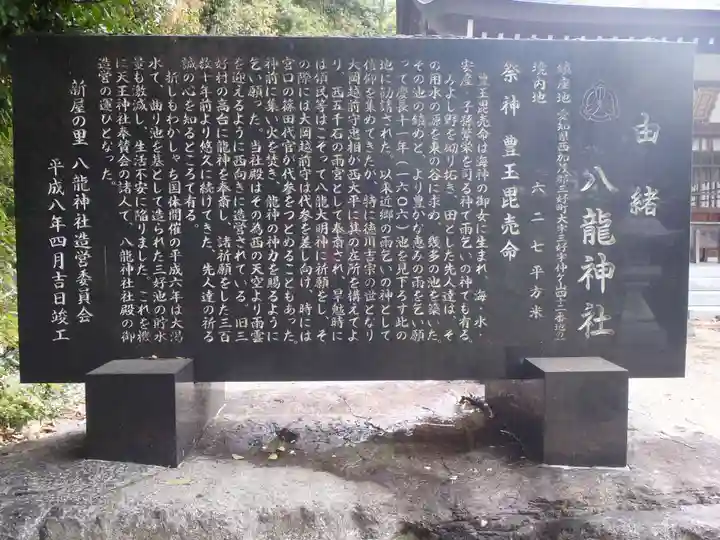 由緒
八龍神社
鎮座地 愛知県西加茂郡三好町大字三好字仲ヶ山
境内地 六二七平方米
祭神 豊玉毘売命
豊玉毘売命は海神の御女に生まれ、海・水・
安産・子孫繁栄を司る神で雨乞いの神でも有る。
みよし野を切り拓き、田とした先人達は、そ
の用水の源を東の谷に求め、幾多の池を築いた。
その池の鎮めと、より豊かな恵みの雨を乞い願
って慶長十一年(一六〇六)池を見下ろす此の
地に勧請された。以来近郷の雨乞いの神として
信仰を集めてきたが、特に徳川吉宗の世となり
大岡越前守忠相が西大平に其の在所を構えてよ
り、西五千石の雨宮として奉斎され、旱魃時に
は領民等はこぞって八龍大明神に祈願をし、そ
の際には大岡越前守は代参を差し向け、時には
宮口の篠田代官が代参をつとめることもあった。
神前に集い火を焚き、龍神の神力を賜るように
乞い願った。当社殿はその為西の天空より雨雲
を迎えるように西向きに造営されている。旧三
好村の高台に龍神を奉斎し、諸祈願をした三百
数十年前より悠久に続けてきた、先人達の祈る
誠の心を知るところて有る。
折しもわかしゃち国体開催の平成六年は大渇
水て、曲り池を基として造られた三好池の貯水
量も激減し、生活不安に陥りました。これを機
に天王神社奉賛会の諸人て、八龍神社社殿の御
造営の運ひとなった。
新屋の里 八龍神社造営委員会
平成八年四月吉日竣工